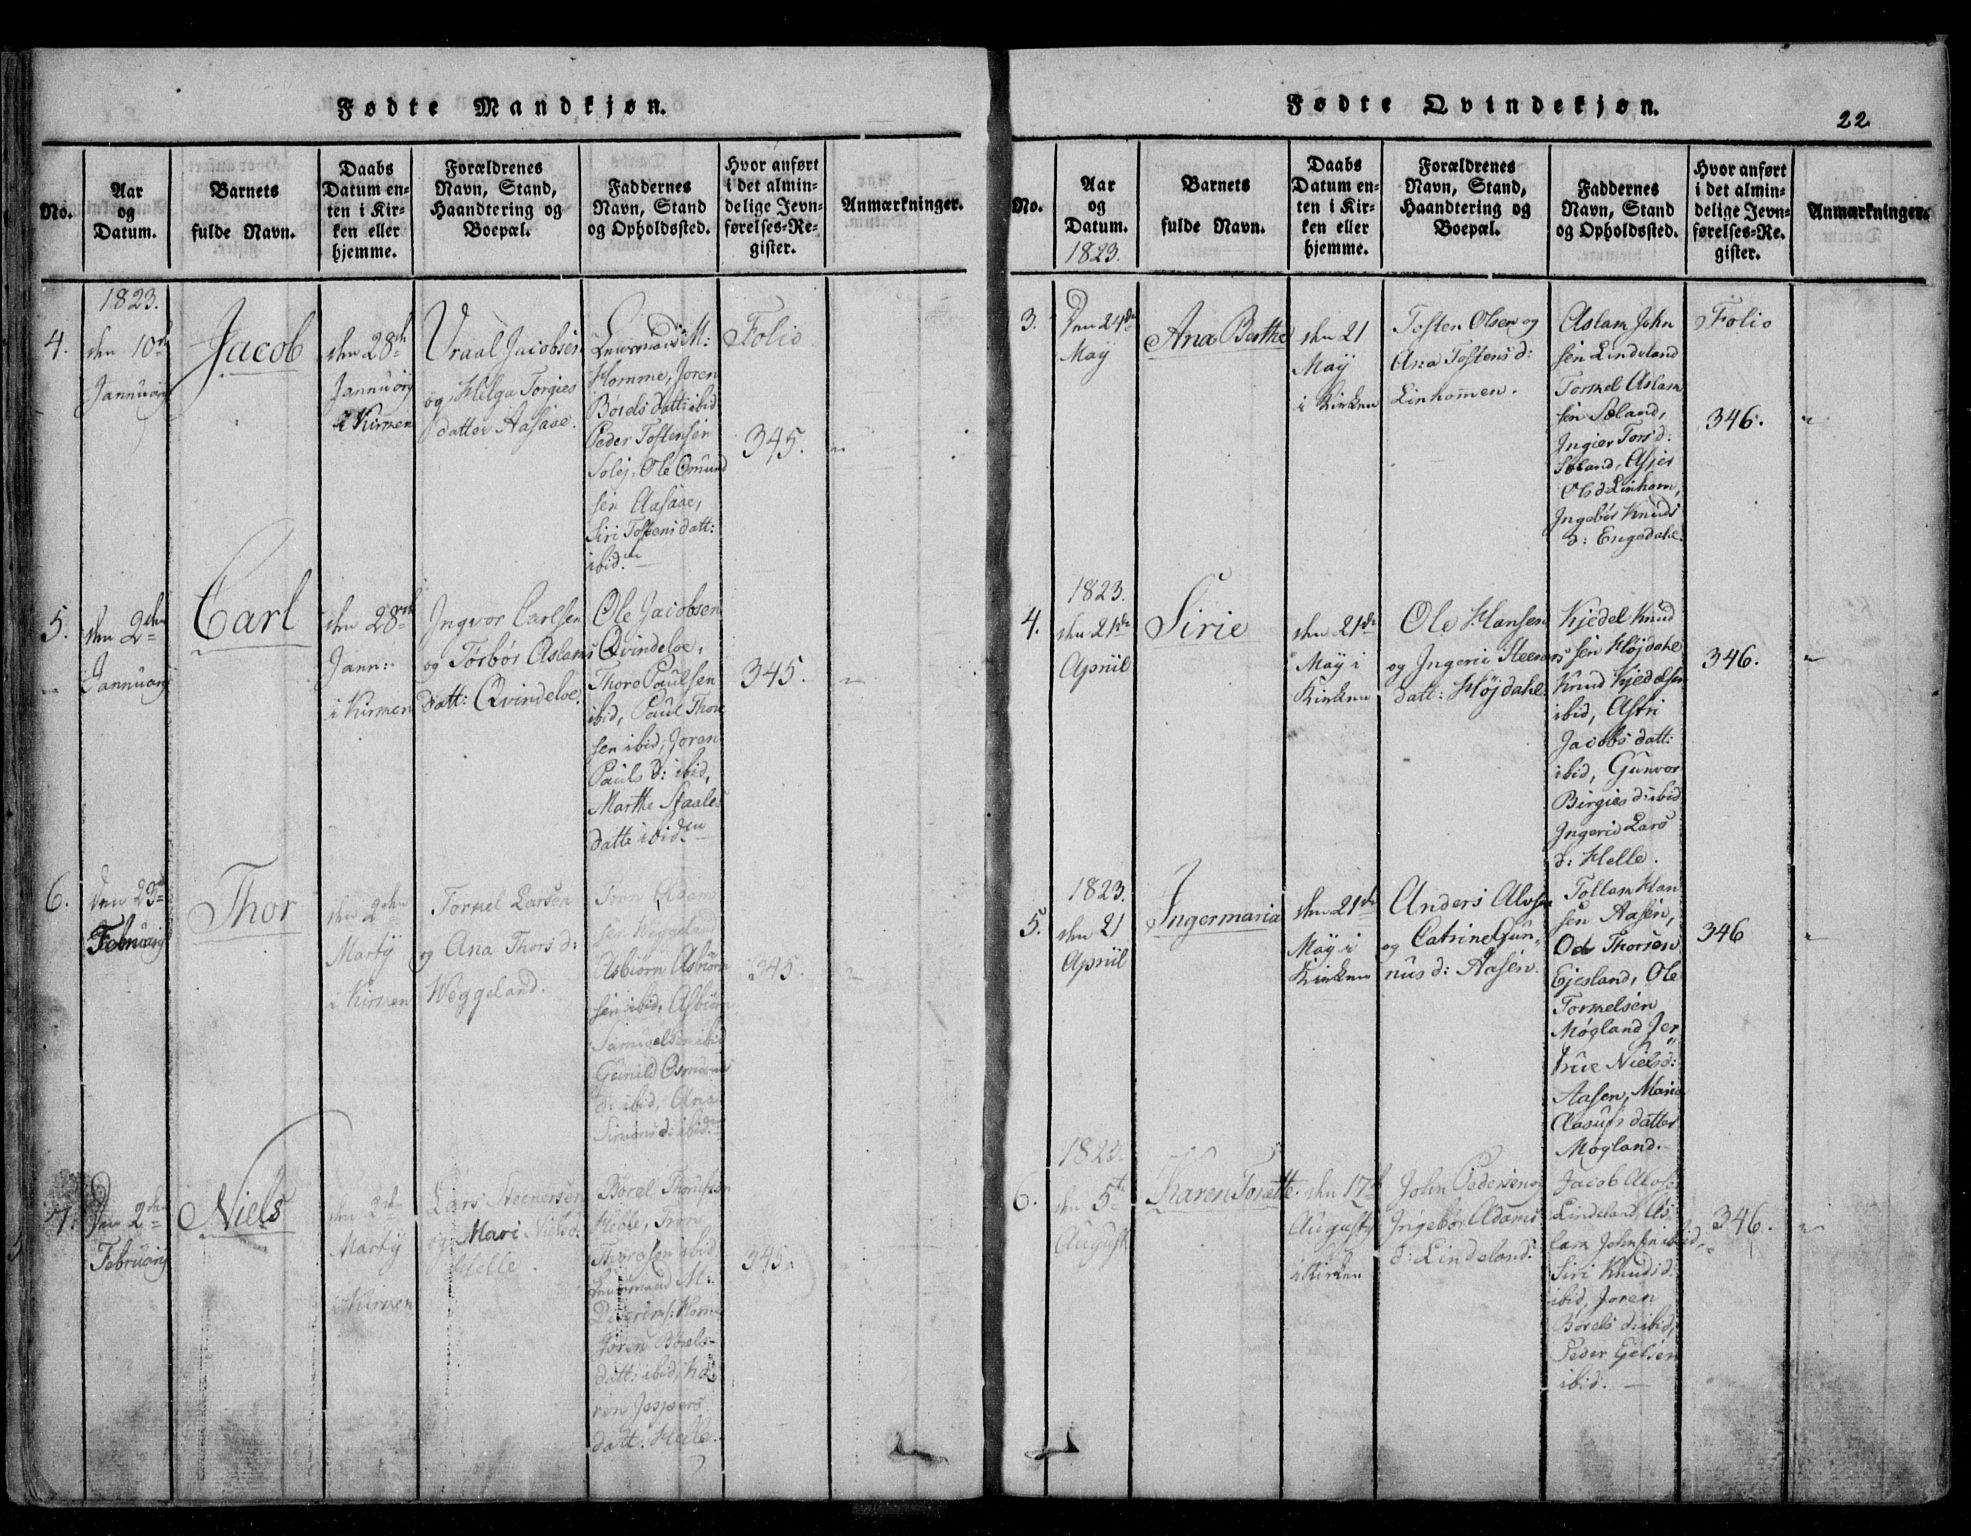 Fødte Mandkjøn.
No.
Aar
og
Datum.
Barnets
fulde Navn.
Daabs
Datum en-
ten i Kir-
ken eller
hjemme.
Forældrenes
Navn, Stand,
Haandtering og
Boepæl.
Faddernes
Navn, Stand
og Opholdssted.
Hvor anført
i det almin-
delige Jevn-
førelses-Re-
gister.
Anmærkninger.
1823.
4.
den 10d
Januarij
Jacob
den 28de
Januarij
i Kirken
Vraal Jacobsen
og Helga Torgies
datter Aasaae.
Leuvmand M:
Homme, Joren
Børels datt: ibid
Peder Tostensen
Solej, Ole Omund
sen Aasaae,
Siri Tostens datt:
ibid.
Folio
345.
5.
den 2den
Januarij
Carl
den 28de
Jann:
i Kirken
Ingvor Carlsen
og Torbør Aslams
datt: Qvindeloe.
Ole Jacobsen
Qvindeloe,
Thore Paulsen
ibid, Paul Thore
sen ibid, Joren
Pauls d: ibid,
Marthe Staales
datte ibid
345.
6.
den 23de
Februarij
Thor
den 2den
Martij
i Kirken
Tormel Larsen
og Ana Thors d:
Weggeland.
Tron Adam
sen Weggeland
Asbiørn Asbiørn
sen ibid, Asbiørn
Samuelsen ibid
Gunild Osmunds
d: ibid, Ana
Simons d: ibid
345.
7.
Den 2den
Februarij
Niels
den 2den
Martij
i Kirken
Lars Steenersen
og Mari Niels d:
Helle.
Børel
Helle, Tron
ibid
Leuvmand M:
Homme
Joren Børels
datt: ibid, Ka
ren Jespers
datt: Helle.
345.
Fødte Qvindekjøn.
22
No.
Aar
og
Datum.
1823.
Barnets
fulde Navn.
Daabs
Datum en-
ten i Kir-
ken eller
hjemme.
Forældrenes
Navn, Stand,
Haandtering og
Boepæl.
Faddernes
Navn, Stand
og Opholdssted.
Hvor anført
i det almin-
delige Jevn-
førelses-Re-
gister.
Anmærkninger.
3.
Den 24de
Maÿ
Ana Berthe
den 21
Maÿ
i Kirken
Tosten Olsen og
Ana Tostens d:
Linhommen.
Aslam John
sen Lindeland
Tormel Aslam
sen Søland,
Ingier Tors d:
Søland, Asjer
Ols d: Linhom,
Ingebør Knuds
d: Engedahl.
Folio
346.
1823.
4.
den 21de
Apriil
Sirie
den 21de
Maÿ i
Kirken
Ole Hansen
og Ingerie Steeners
datt: Højdahl.
Kjedel Knud
sen Højdahl
Knud Kjedelsen
ibid, Astri
Jacobs datt:
ibid, Gunvor
Birgies d: ibid
Ingerid Lars
d: Helle.
346.
1823.
5.
den 21
Apriil
Ingermaria
den 21de
Maÿ i
Kirken
Anders Alvsen
og Catrine Gun,,
nus d: Aasen.
Tollam Han
sen Aasen,
Od Thorsen
Ejesland, Ole
Tormelsen
Møgland Jer
true Niels d:
Aasen, Maria
Aasuls datter
Møgland.
346
1823.
6.
den 5te
August
Karen Tonette
den 17de
Augustj
i Kirken
John Pedersen og
Ingebør Adams
d: Lindeland.
Jacob Alvs:
Lindeland, As,
lam Johnsen ibid,
Siri Knuds d:
ibid, Joren
Børels d: ibid,
Peder Gelsen
ibid.
346.